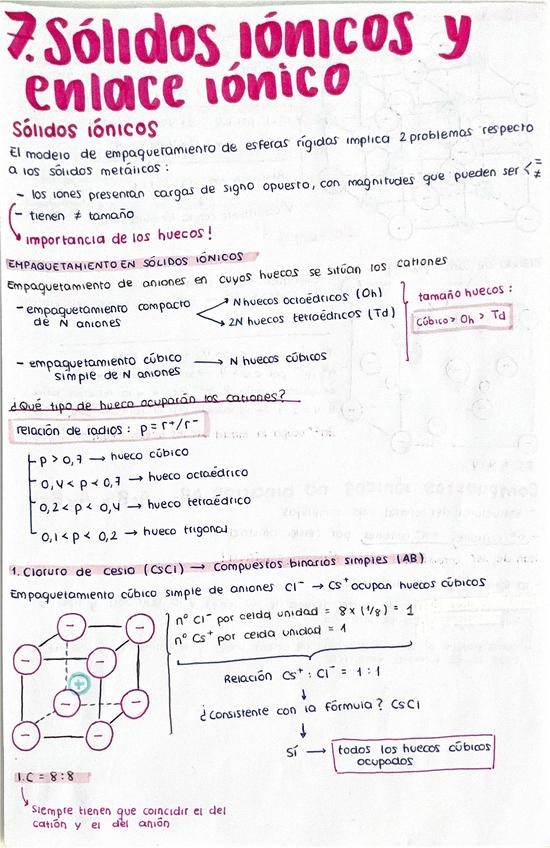 7. Sólidos iónicos y
enlace iónico
Sólidos iónicos
El modelo de empaquetamiento de esferas rígidas implica 2 problemas respecto
a los sólidos metálicos:
- los iones presentan cargas de signo opuesto, con magnitudes que pueden ser < = ≠
- tienen ≠ tamaño
importancia de los huecos!
EMPAQUETAMIENTO EN SÓLIDOS IÓNICOS
Empaquetamiento de aniones en cuyos huecos se sitúan los cationes
- empaquetamiento compacto
de N aniones
→ N huecos octaédricos (Oh)
→ 2N huecos tetraédricos (Td)
tamaño huecos:
cúbico > Oh > Td
- empaquetamiento cúbico → N huecos cúbicos
simple de N aniones
¿Qué tipo de hueco ocuparán los cationes?
relación de radios: p = r⁺/r⁻
p > 0,7 → hueco cúbico
0,4 < p < 0,7 → hueco octaédrico
0,2 < p < 0,4 → hueco tetraédrico
0,1 < p < 0,2 → hueco trigonal
1. Cloruro de cesio (CsCl) → Compuestos binarios simples (AB)
Empaquetamiento cúbico simple de aniones Cl⁻ → Cs⁺ ocupan huecos cúbicos
nº Cl⁻ por celda unidad = 8 x (1/8) = 1
nº Cs⁺ por celda unidad = 1
Relación Cs⁺ : Cl⁻ = 1 : 1
↓
¿Consistente con la fórmula? CsCl
↓
SÍ → todos los huecos cúbicos
ocupados
I.C = 8:8
Siempre tienen que coincidir el del
catión y el del anión